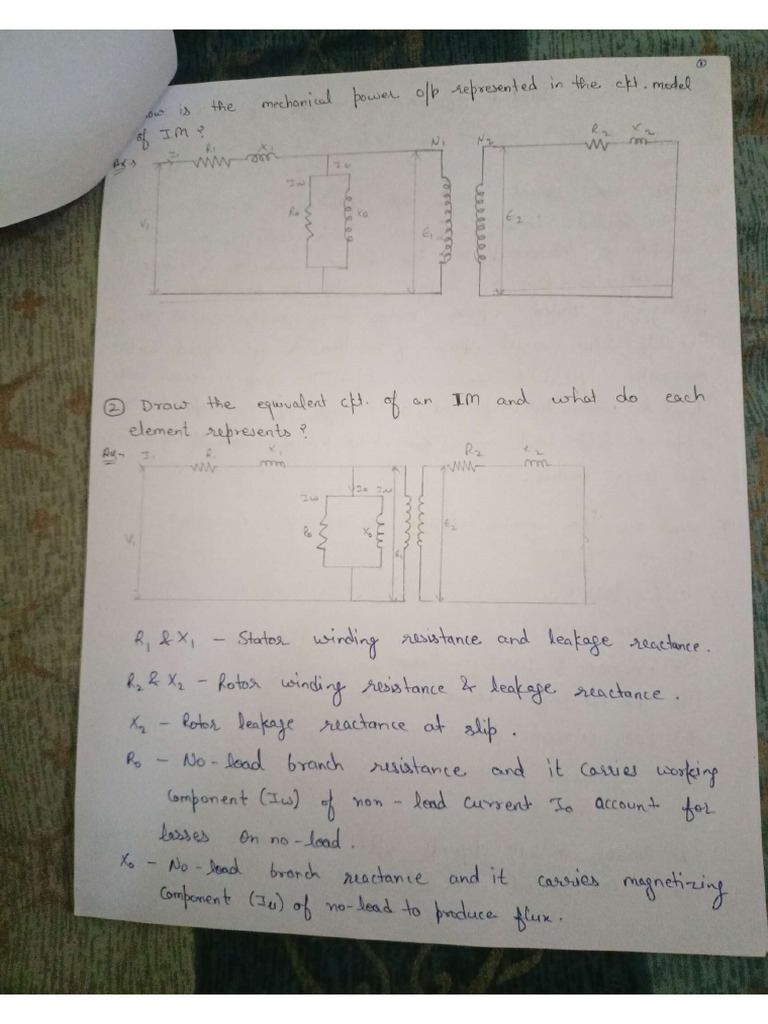 ①
ow is the mechanical power o/p represented in the ckt. model
of IM ?
Ans→ I1 R1 X1 N1 N2 R2 X2
I0
Iw
V1 R0 X0 E1 E2
② Draw the equivalent ckt. of an IM and what do each
element represents ?
Ans- I1 R1 X1 R2 X2
Iw I0 Iu
V1 R0 X0 E1 E2
R1 & X1 - Stator winding resistance and leakage reactance.
R2 & X2 - Rotor winding resistance & leakage reactance.
X2 - Rotor leakage reactance at slip.
R0 - No-load branch resistance and it carries working
Component (Iw) of non-load current I0 account for
losses on no-load.
X0 - No-load branch reactance and it carries magnetizing
Component (Iu) of no-load to produce flux.